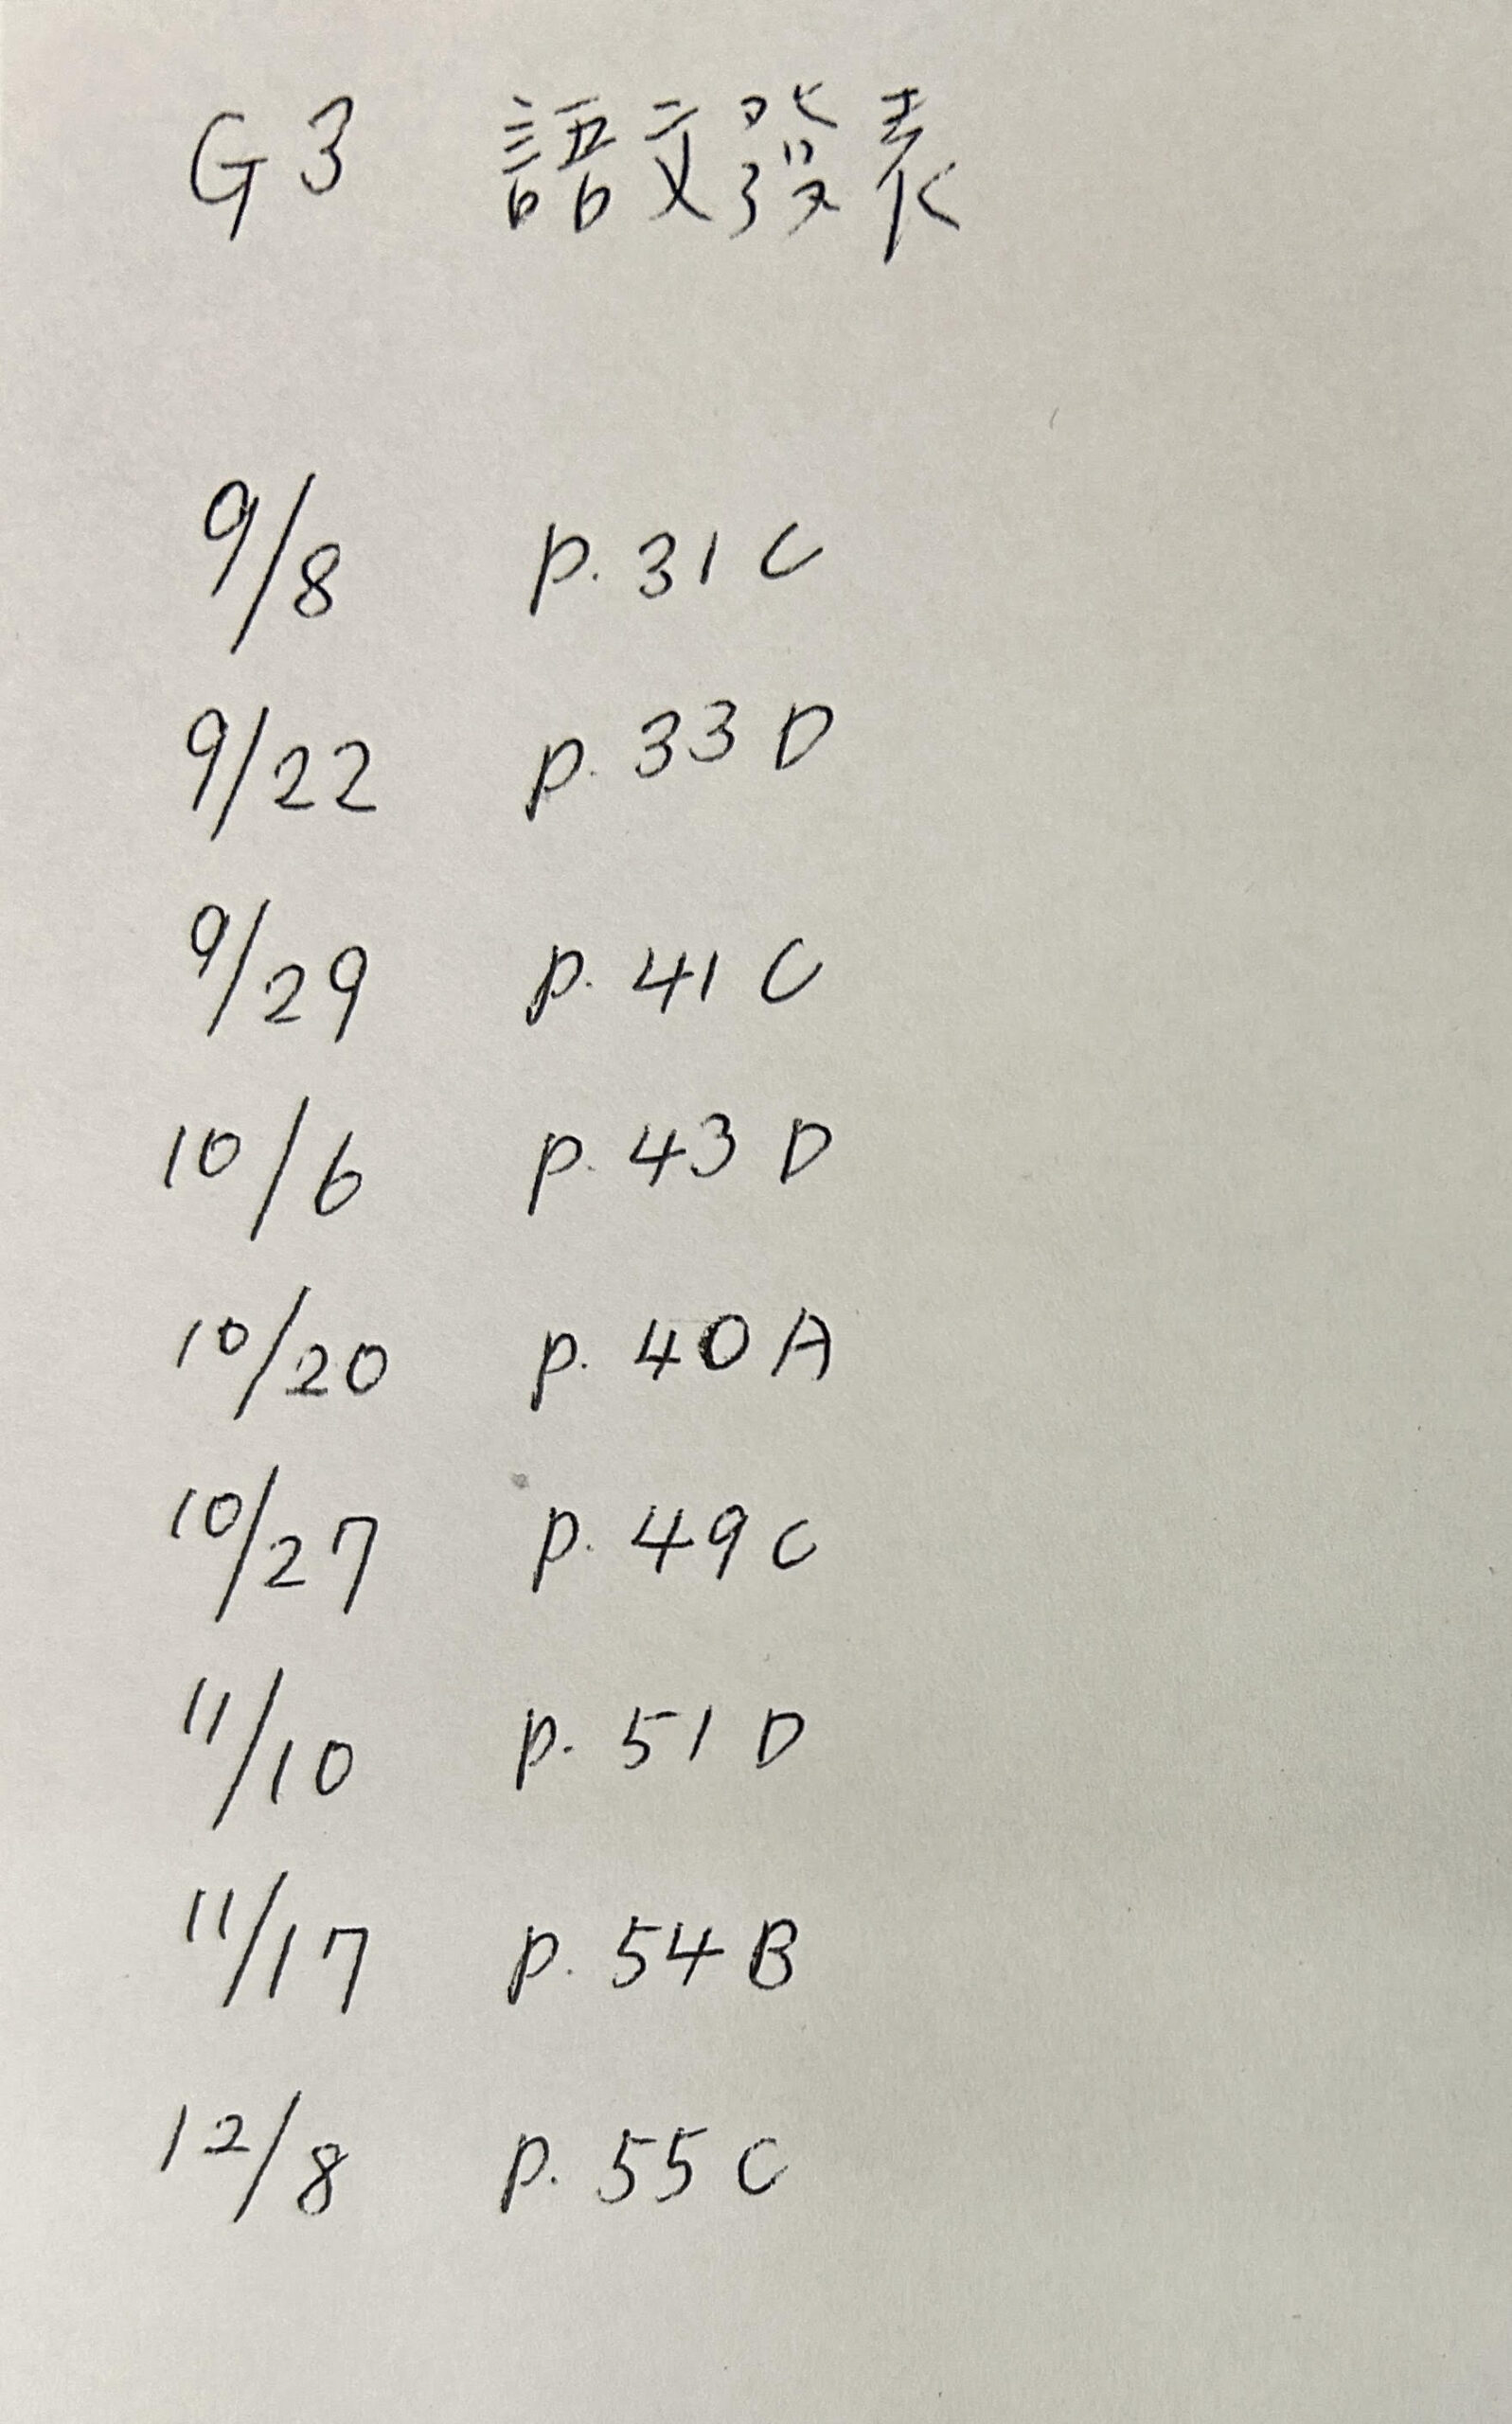 G3 語文發表
9/8 p. 31 C
9/22 p. 33 D
9/29 p. 41 C
10/6 p. 43 D
10/20 p. 40 A
10/27 p. 49 C
11/10 p. 51 D
11/17 p. 54 B
12/8 p. 55 C